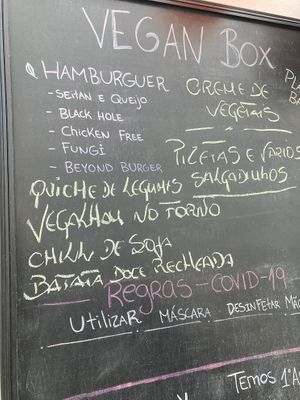 VEGAN BOX
HAMBURGUER
- SEITAN E QUEIJO
- BLACK HOLE
- CHICKEN FREE
- FUNGI
- BEYOND BURGER
CREME DE
VEGETAIS
E VÁRIOS
SALGADINHOS
QUICHE DE LEGUMES
NO FORNO
CHILLI DE SOJA
BATATA DOCE RECHEADA
REGRAS - COVID-19
UTILIZAR MÁSCARA DESINFETAR
TEMOS 1º